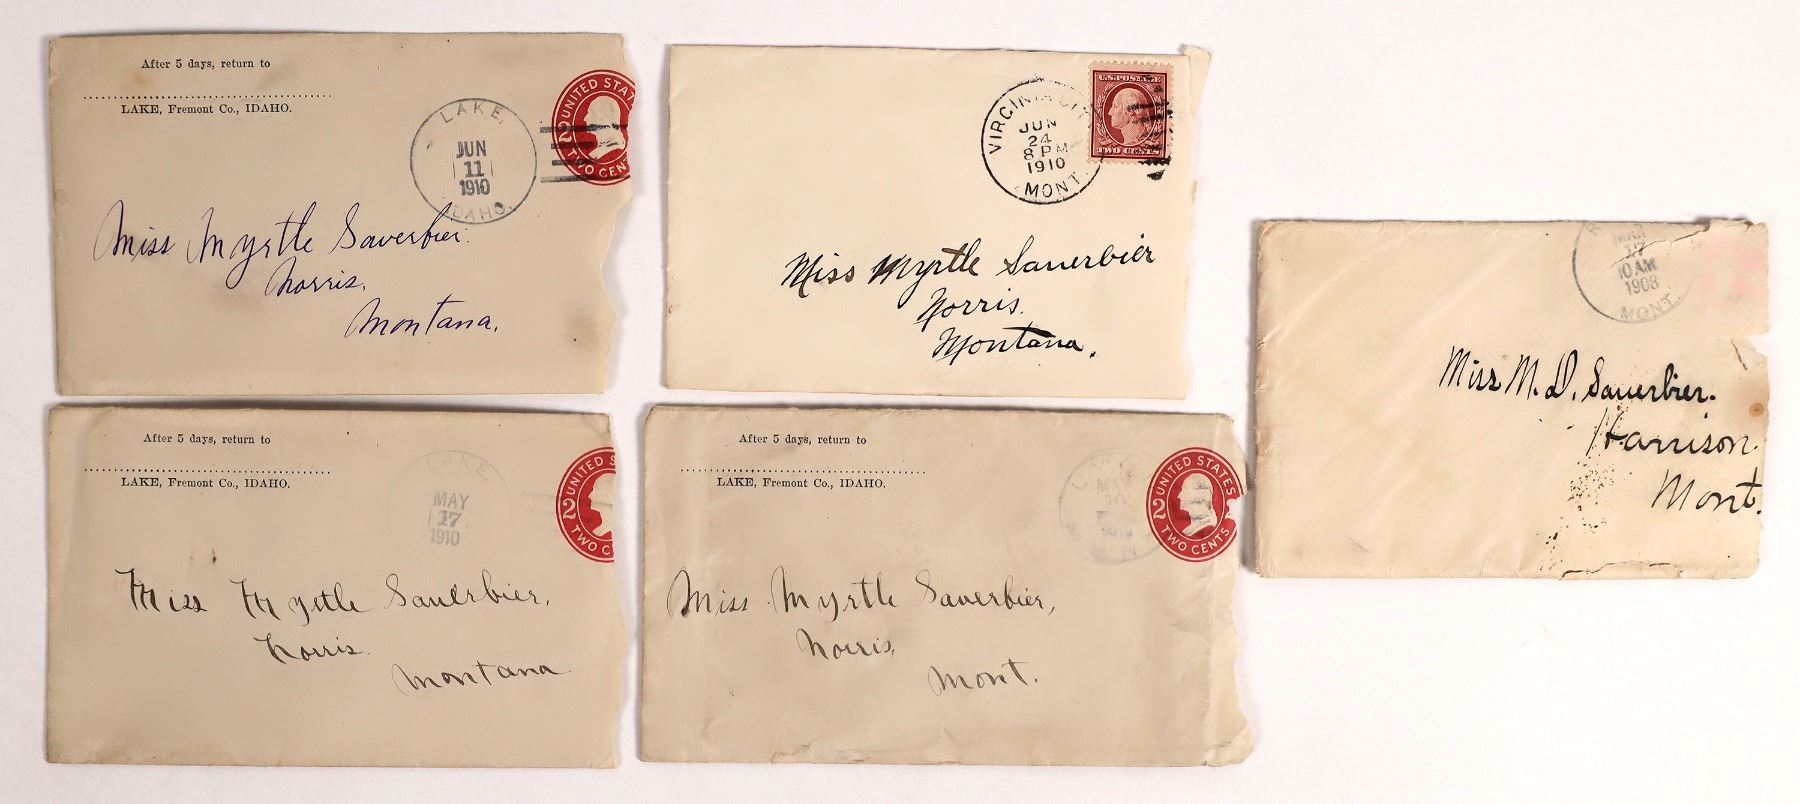 After 5 days, return to
LAKE, Fremont Co., IDAHO.
LAKE,
JUN
11
1910
IDAHO.
UNITED STATES
2
TWO CENTS
Miss Myrtle Sauerbier.
Norris,
Montana.
VIRGINIA CITY
JUN
24
8 PM
1910
MONT.
U.S. POSTAGE
TWO CENTS
Miss Myrtle Sauerbier
Norris.
Montana.
17
10 AM
1908
MONT.
Miss M. D. Sauerbier.
Harrison.
Mont.
After 5 days, return to
LAKE, Fremont Co., IDAHO.
LAKE,
MAY
17
1910
UNITED S
2
TWO C
Miss Myrtle Sauerbier,
Norris.
Montana
After 5 days, return to
LAKE, Fremont Co., IDAHO.
MAY
UNITED STATES
2
TWO CENTS
Miss Myrtle Sauerbier,
Norris,
Mont.